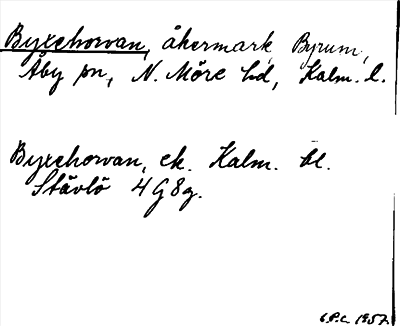 Byxehorvan, åkermark, Byrum,
Åby sn, N. Möre hd, Kalm. l.
Byxehorvan, ek. Kalm. bl.
Stävlö 4G8g.
1957